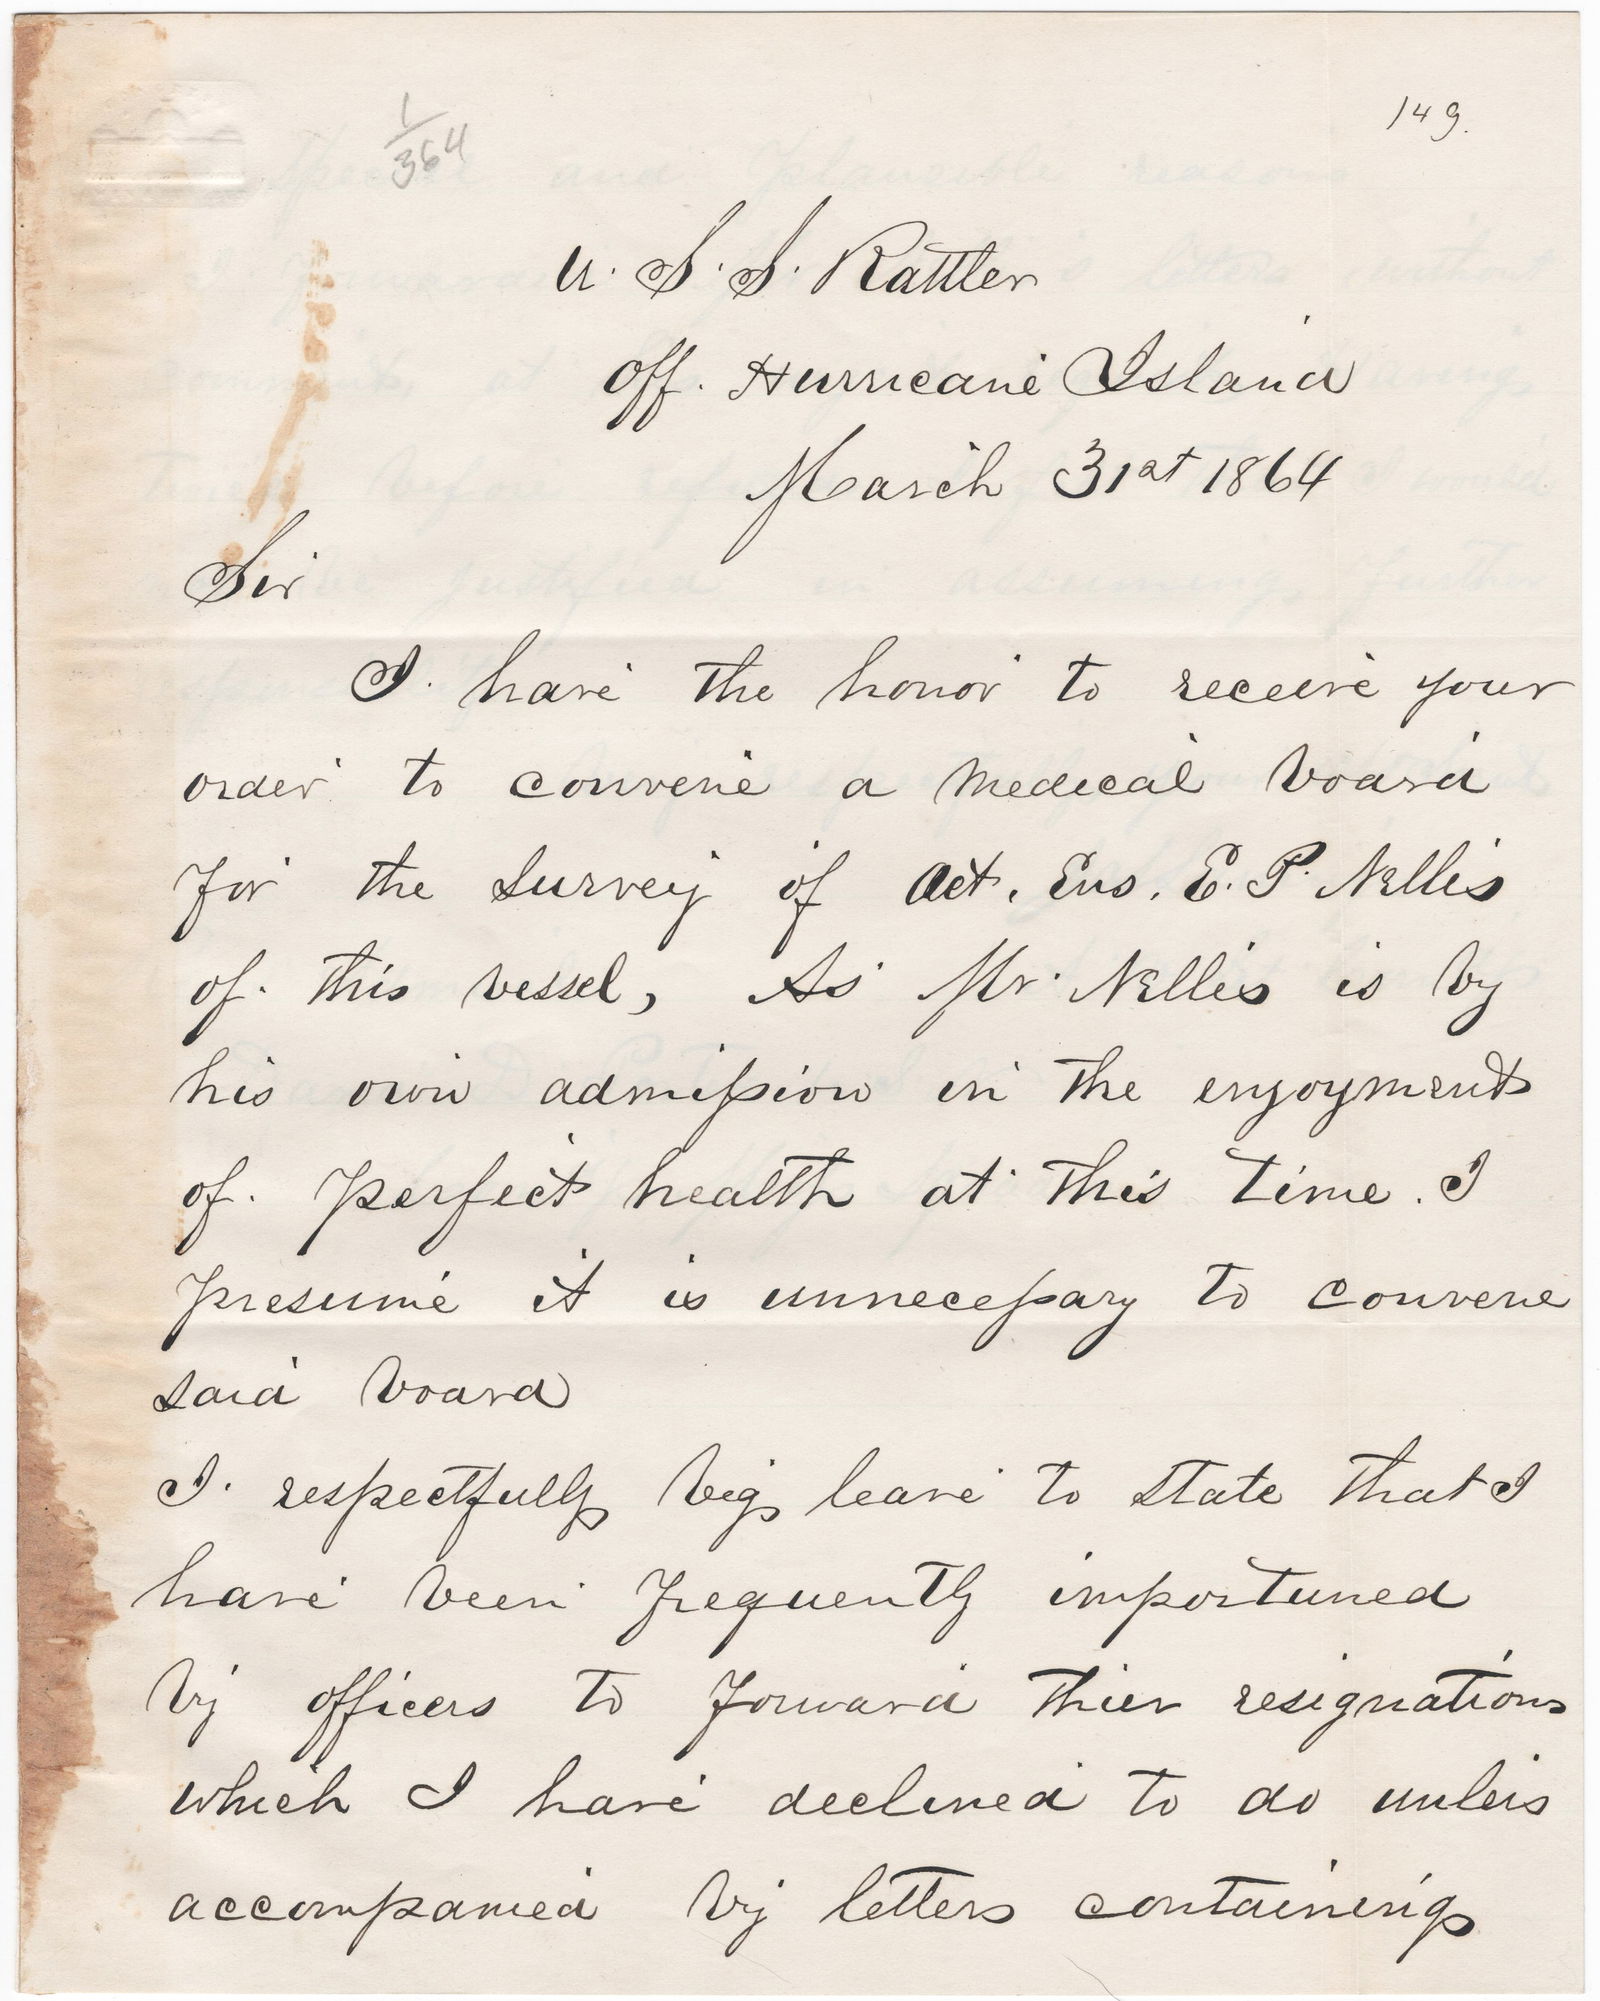 149.
1/364
U. S. S. Rattler
Off. Hurricane Island
March 31st 1864
Sir
I. have the honor to receive your
order to convene a Medical board
for the survey of Act. Ens. E. P. Nellis
of this vessel, As Mr. Nellis is by
his own admission in the enjoyment
of perfect health at this time. I
presume it is unnecessary to convene
said board
I. respectfully beg leave to state that I
have been frequently importuned
by officers to forward thier resignations
which I have declined to do unless
accompanied by letters containing